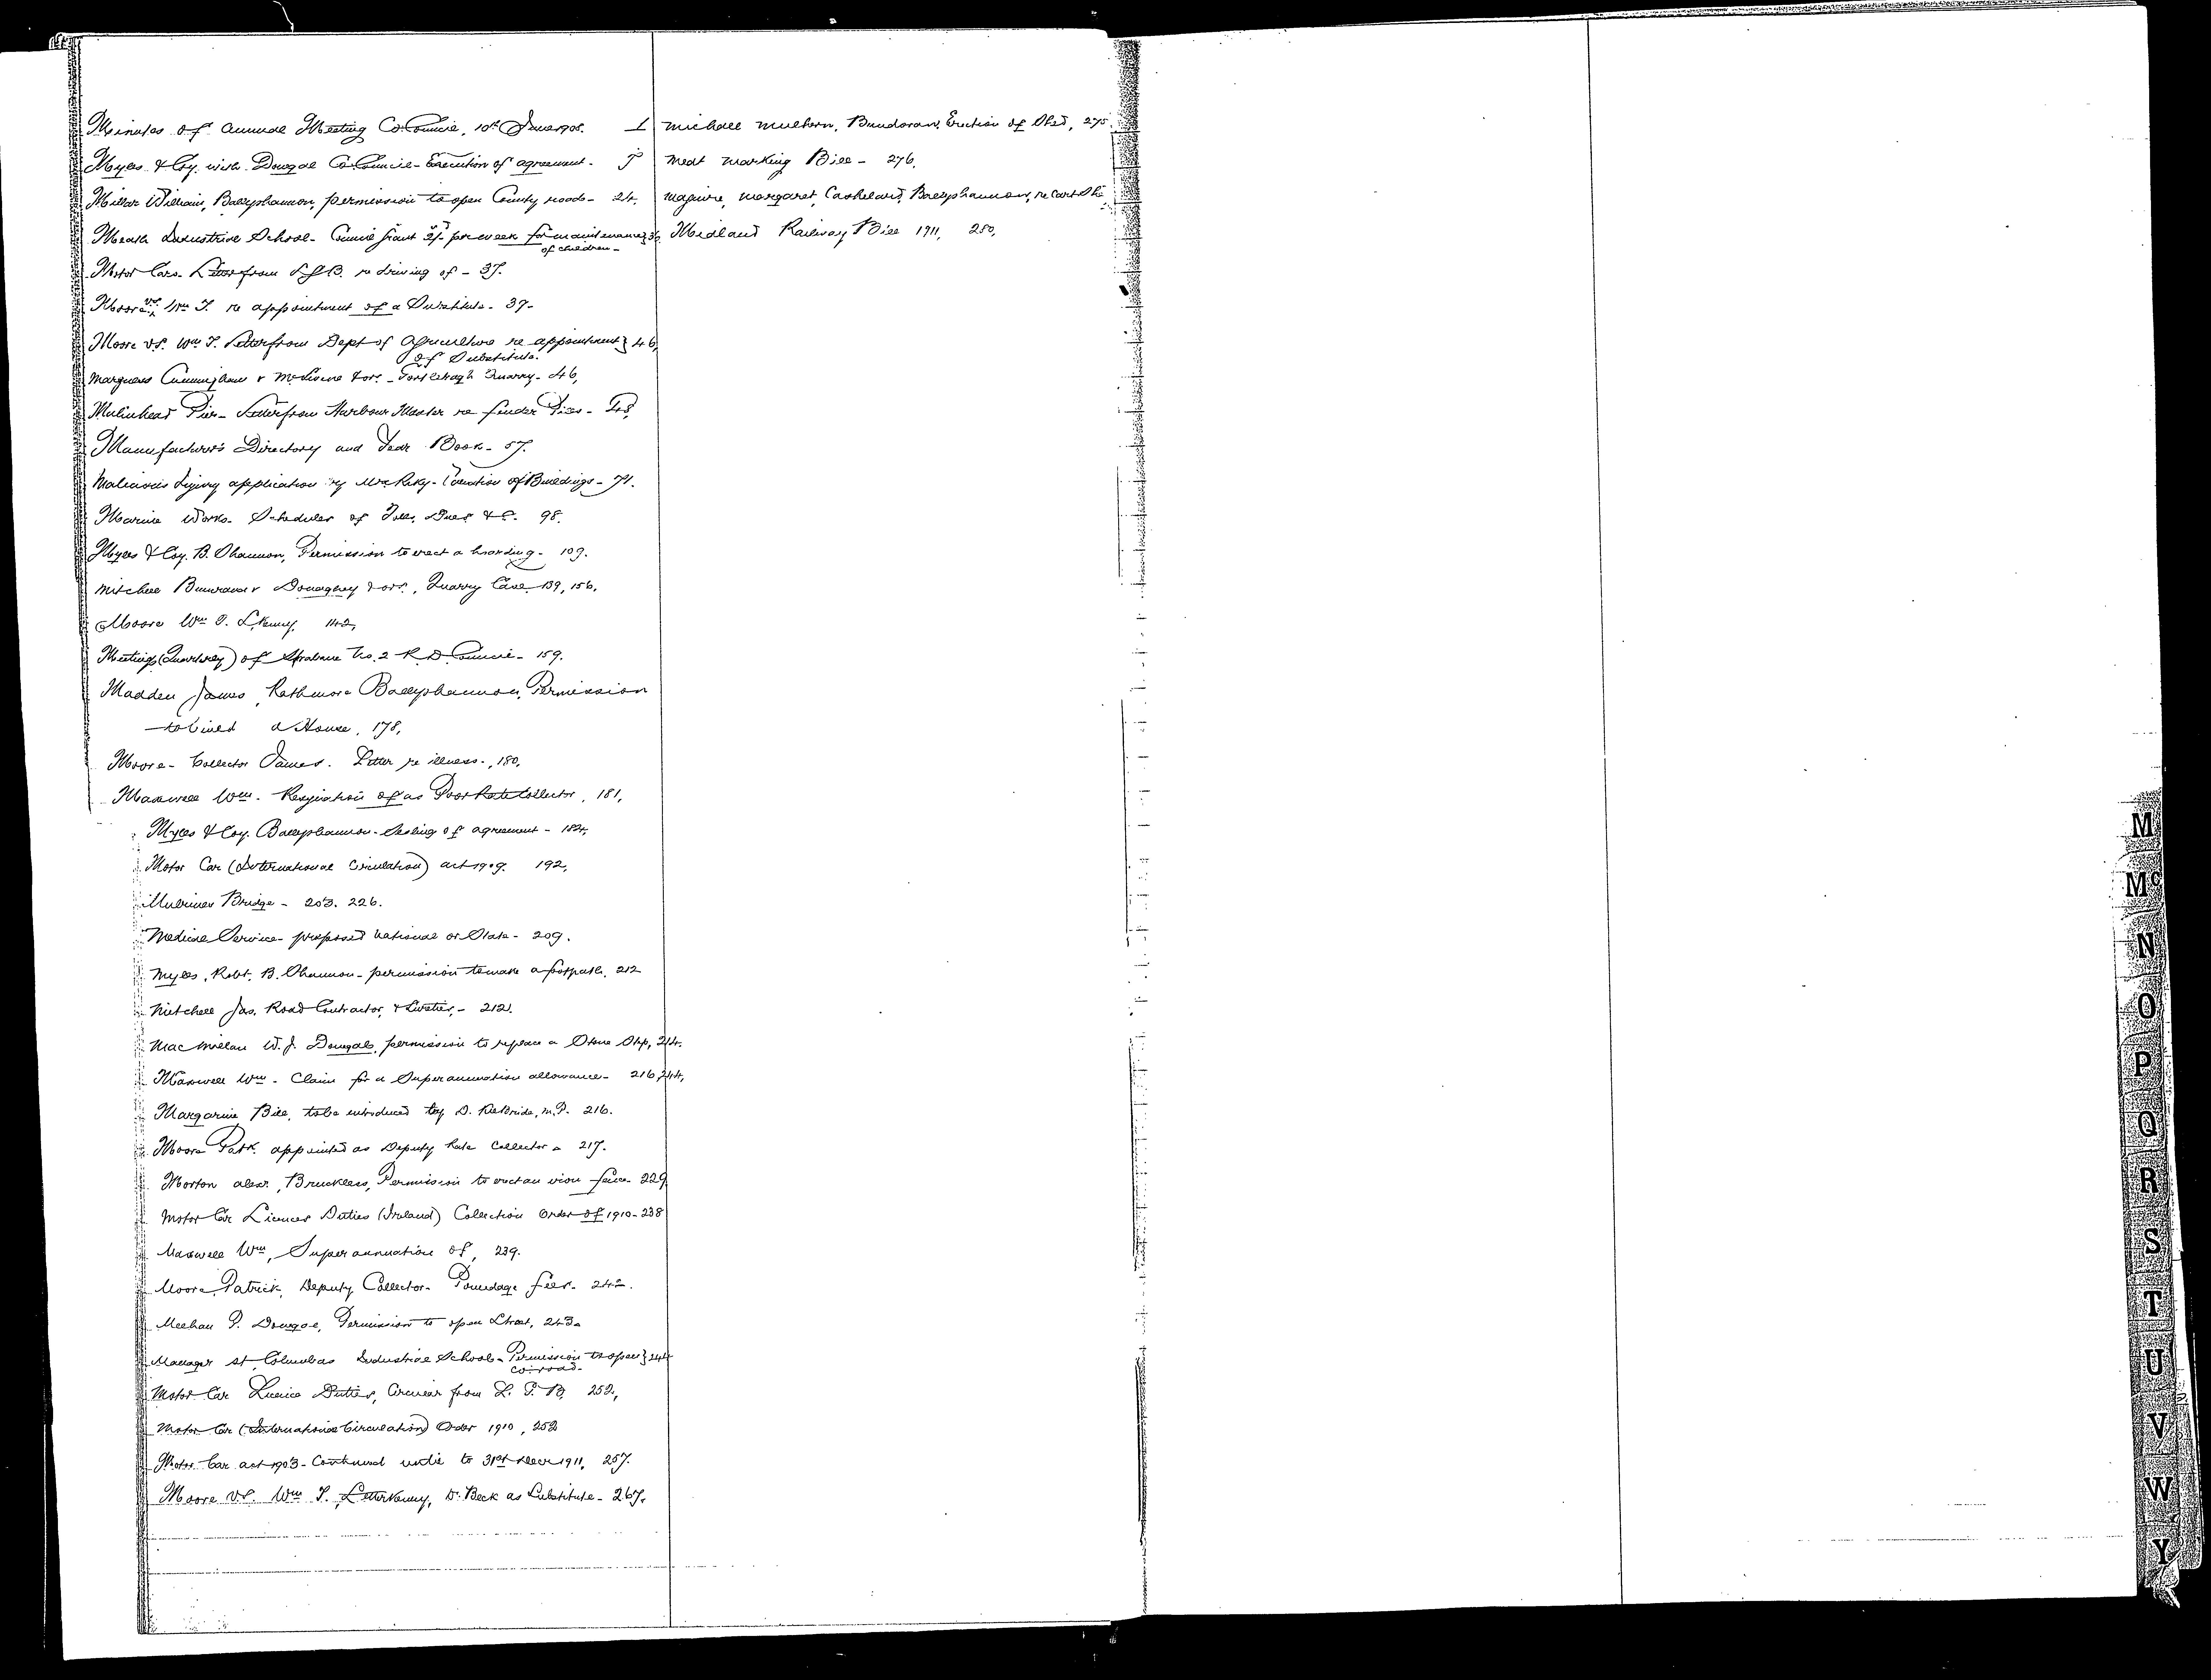 Minutes of Annual Meeting Co. Council, 10th June 1908. 1
Myles & Coy. with Donegal Co. Council - Execution of agreement - 5
Millar William, Ballyshannon, permission to open County roads - 24.
Meath Industrial School - Council grant 2/- per week for maintenance } 36
of children -
Motor Cars - Letter from L.G.B. re driving of - 37.
Moore V.S. Wm. T. re appointment of a Substitute - 37 -
Moore V.S. Wm. T. Letter from Dept of Agriculture re appointment } 46,
of Substitute.
Marquess Conyngham v & ors. - Quarry - 46,
Malinhead Pier - Letter from Harbour Master re fender Piles - 48,
Manufacturer's Directory and Year Book - 57.
Malicious Injury application by - of Buildings - 71.
Marine Works - Schedules of Tolls, Dues &c. 98.
Myles & Coy. B. Shannon, Permission to erect a hoarding - 109.
Mitchell Buncrana v Donaghey & ors., Quarry Case 139, 156.
Moore Wm. T. L.Kenny, 142,
Meetings (Quarterly) of Strabane No. 2 R. D. Council - 159.
Madden James, Rathmore Ballyshannon, Permission
to build a House, 178,
Moore - Collector James. Letter re illness -, 180,
Maxwell Wm. - Resignation of as Poor Rate Collector, 181,
Myles & Coy. Ballyshannon - Sealing of agreement - 184,
Motor Car (International Circulation) Act 1909. 192,
Bridge - 203. 226.
Medical Service - proposed National or State - 209.
Myles, Robt. B. Shannon - permission to make a footpath, 212
Mitchell Jas. Road Contractor, & Sureties, - 212.
MacMillan W. J. Donegal, permission to replace a Stone Step, 214.
Maxwell Wm. - Claim for a Superannuation allowance - 216, 244,
Margarine Bill, to be introduced by D. Kilbride, M.P. 216.
Moore Patk. appointed as Deputy Rate Collector - 217.
Morton Alexr., Bruckless, Permission to erect an iron fence - 229
Motor Car Licences Duties (Ireland) Collection Order of 1910 - 238
Maxwell Wm., Superannuation of, 239.
Moore, Patrick, Deputy Collector - Poundage fees - 242.
Meehan P. Donegal, Permission to open Street, 243 -
Manager St Columbas Industrial School - Permission to open } 244
Co. road -
Motor Car Licence Duties, Circular from L. G. B, 252,
Motor Car (International Circulation) Order 1910, 252
Motor Car Act 1903 - Continued until to 31st Decr 1911, 257.
Moore V.S. Wm. T. Letterkenny, D. Beck as Substitute - 267.
Michael Mulhern, Bundoran, Erection of Shed, 275.
Meat Marking Bill - 276.
Maguire, Margaret, Cashelard, Ballyshannon, re Cart Sh
Midland Railway Bill 1911, 280,
M
Mc
N
O
P
Q
R
S
T
U
V
W
Y